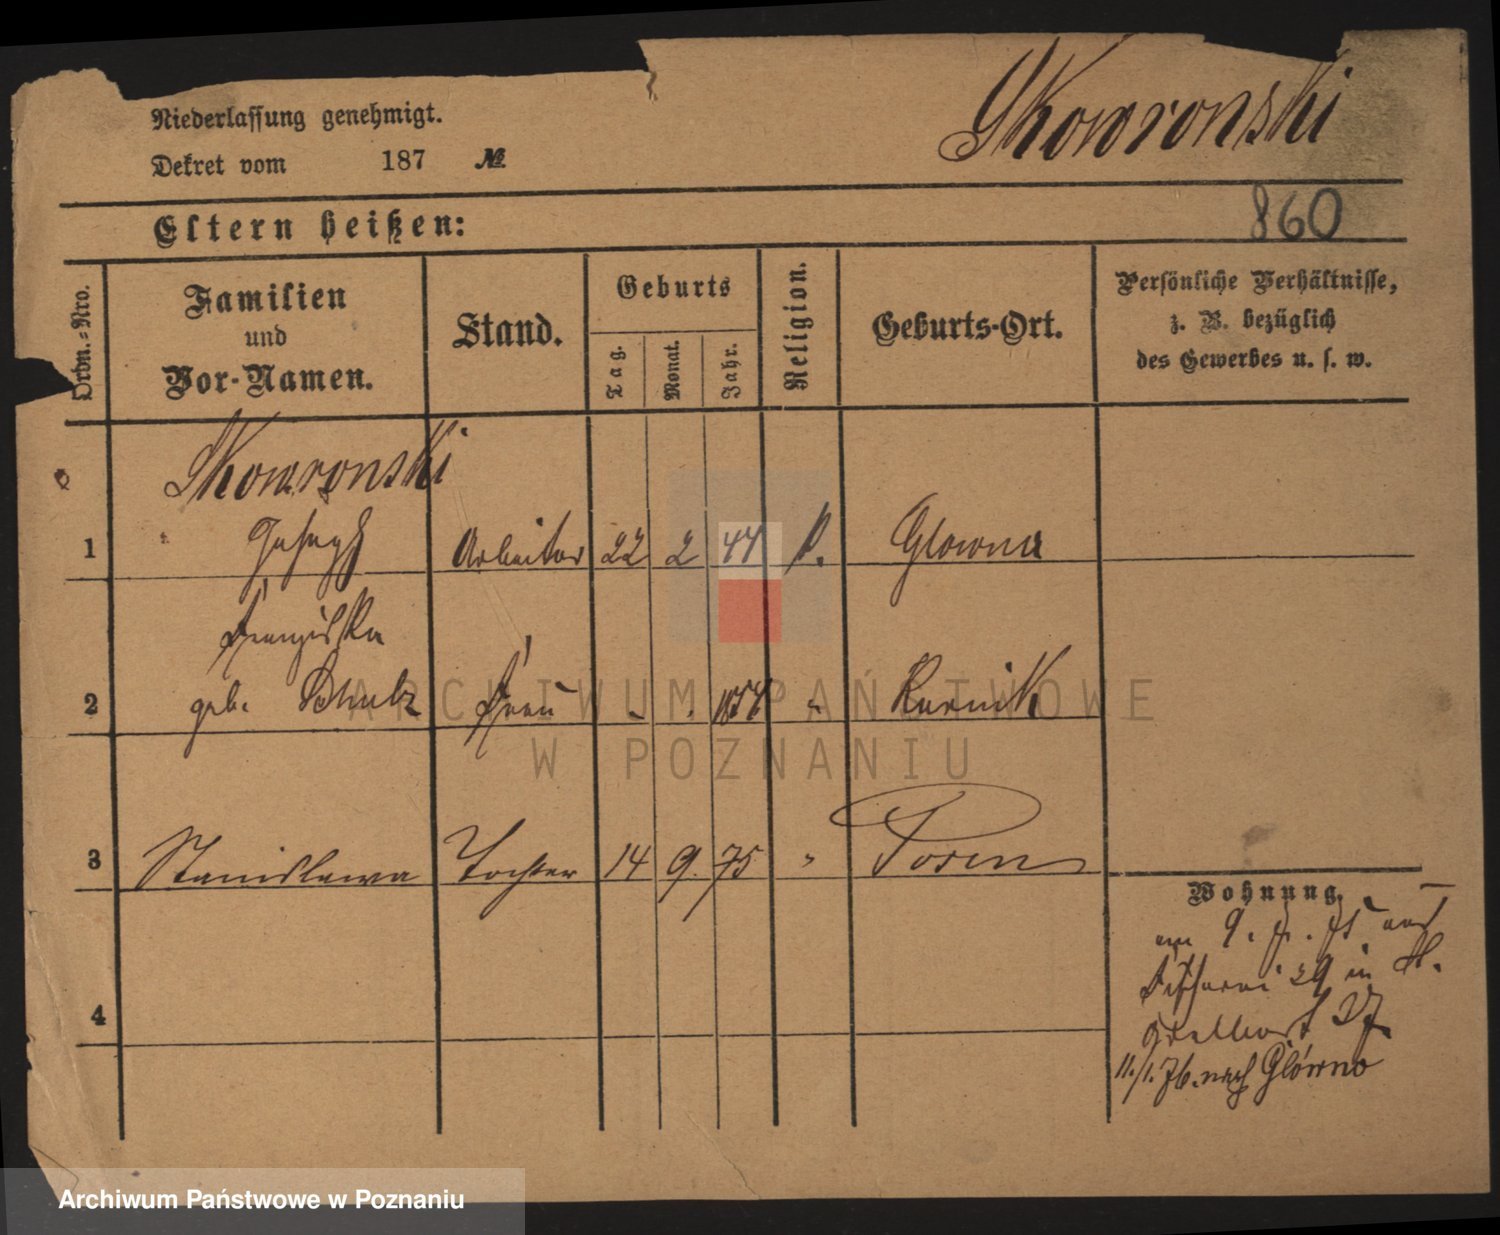 Skowronski
Niederlassung genehmigt.
Dekret vom 187 №
860
Eltern heißen:
Ordn.-Nro.
Familien
und
Vor-Namen.
Stand.
Geburts
Tag.
Monat.
Jahr.
Religion.
Geburts-Ort.
Persönliche Verhältnisse,
z. B. bezüglich
des Gewerbes u. s. w.
Skowronski
1 Joseph Arbeiter 22 2 44 k. Glowna
Franziska
2 geb. Schulz Frau - . 1854 " Kurnik
3 Stanislawa Tochter 14 9. 75 " Posen
4
Wohnung.
am 9. 7. 75 aus
Fischerei 29 in St.
27
11./1. 76. nach Glówno
ARCHIWUM PAŃSTWOWE
W POZNANIU
Archiwum Państwowe w Poznaniu